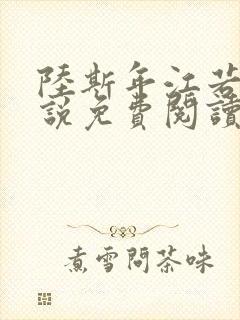 陸斯年江若
說免費閱讀
煮雪問茶味